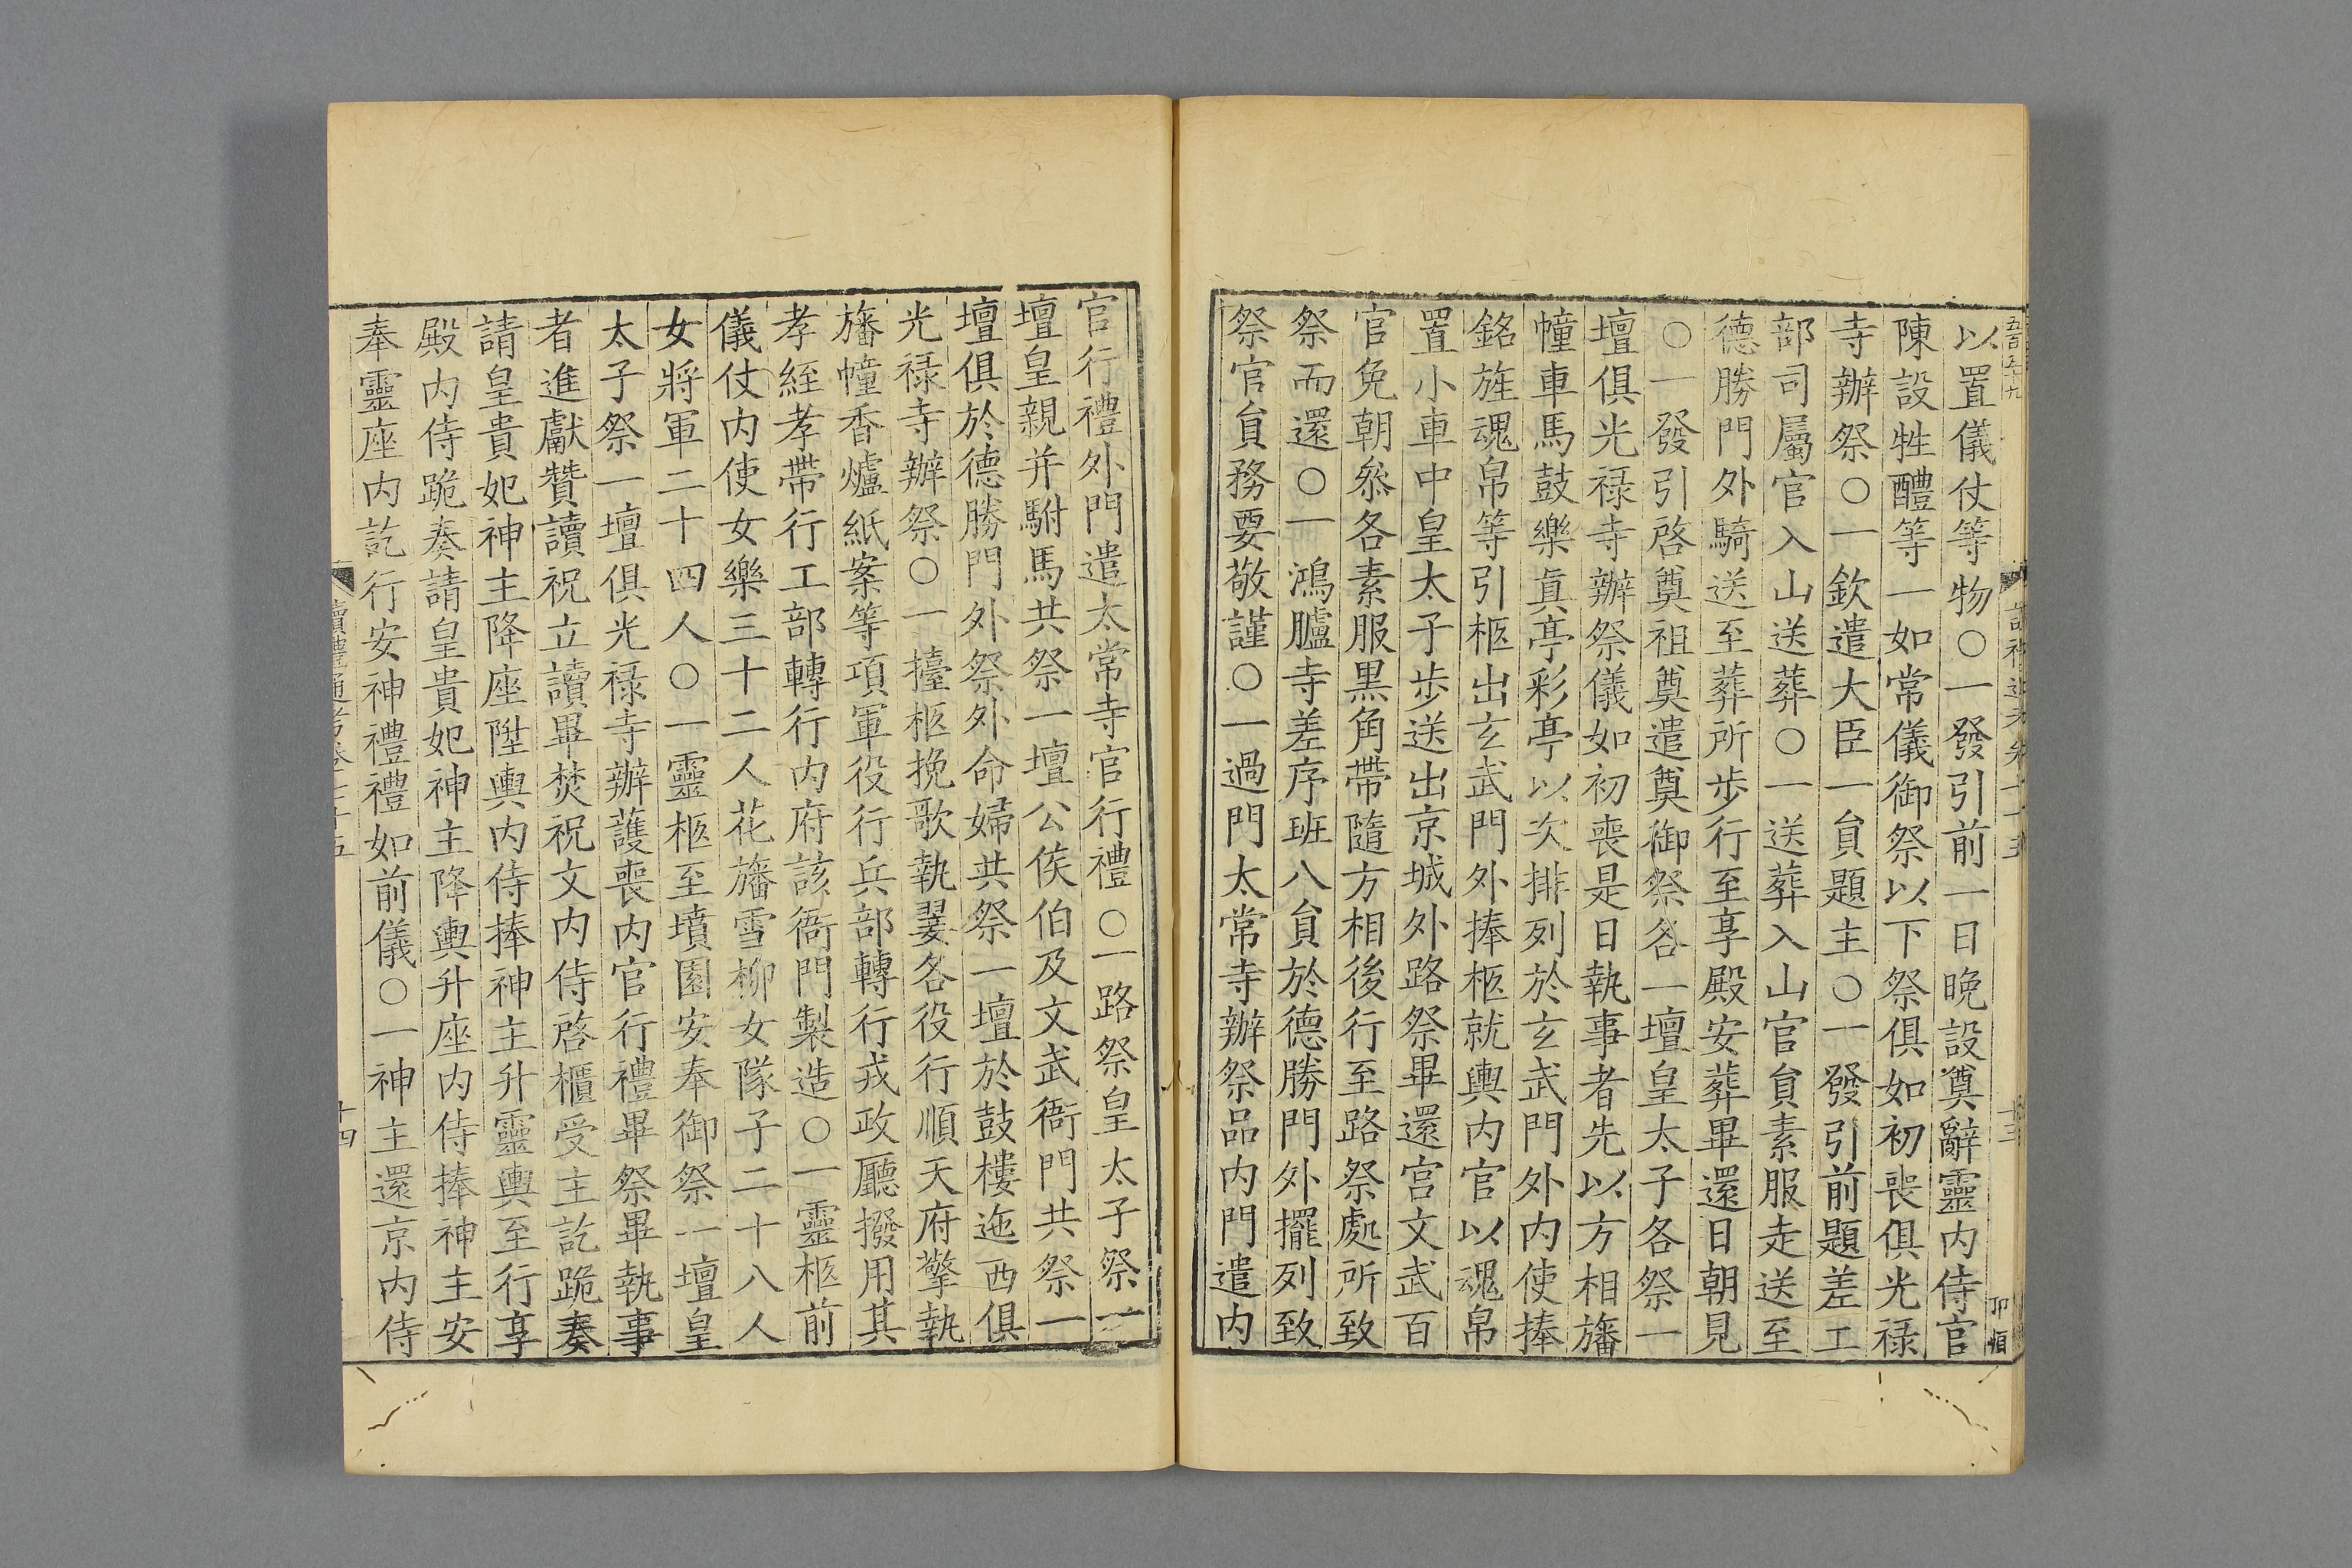 以置儀仗等物○一發引前一日晚設奠辭靈内侍官
陳設牲醴等一如常儀御祭以下祭俱如初喪俱光禄
寺辦祭○一欽遣大臣一貟題主○一發引前題差工
部司屬官入山送葬○一送葬入山官貟素服走送至
德勝門外騎送至葬所步行至享殿安葬畢還日朝見
○一發引啓奠祖奠遣奠御祭各一壇皇太子各祭一
壇俱光禄寺辦祭儀如初喪是日執事者先以方相旛
幢車馬鼓樂真亭彩亭以次排列於玄武門外内使捧
銘旌魂帛等引柩出玄武門外捧柩就輿内官以魂帛
置小車中皇太子步送出京城外路祭畢還宫文武百
官免朝叅各素服黒角帶隨方相後行至路祭處所致
祭而還○一鴻臚寺差序班八貟於德勝門外擺列致
祭官貟務要敬謹○一過門太常寺辦祭品内門遣内
官行禮外門遣太常寺官行禮○一路祭皇太子祭一
壇皇親并駙馬共祭一壇公侯伯及文武衙門共祭一
壇俱於德勝門外祭外命婦共祭一壇於鼓樓迤西俱
光禄寺辦祭○一擡柩挽歌執翣各役行順天府擎執
旛幢香爐紙案等項軍役行兵部轉行戎政廳撥用其
孝絰孝帶行工部轉行内府該衙門製造○一靈柩前
儀仗内使女樂三十二人花旛雪柳女隊子二十八人
女將軍二十四人○一靈柩至墳園安奉御祭一壇皇
太子祭一壇俱光禄寺辦護喪内官行禮畢祭畢執事
者進獻贊讀祝立讀畢焚祝文内侍啓櫃受主訖跪奏
請皇貴妃神主降座陞輿内侍捧神主升靈輿至行享
殿内侍跪奏請皇貴妃神主降輿升座内侍捧神主安
奉靈座内訖行安神禮禮如前儀○一神主還京内侍
讀禮通考卷
十四